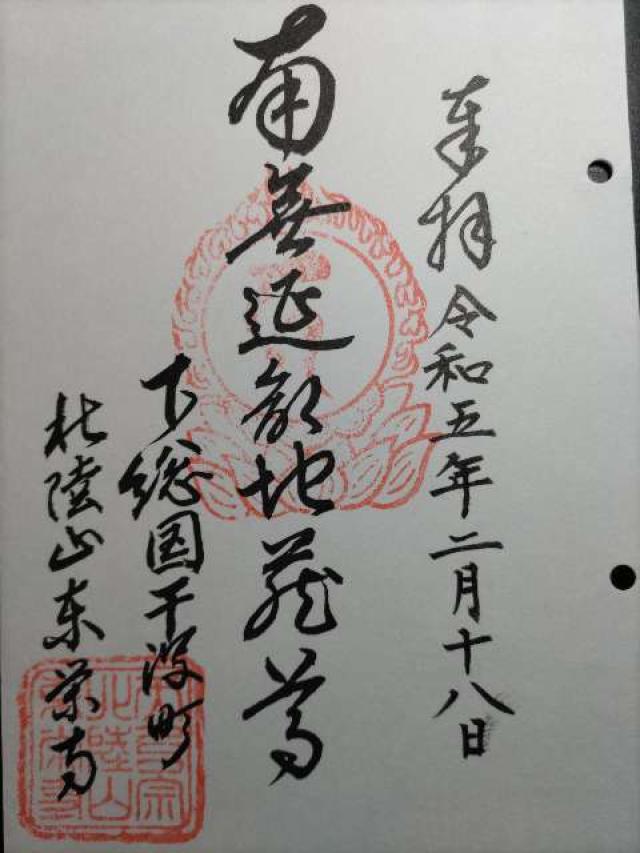 奉拝 令和五年二月十八日
南無延命地蔵尊
下総国干潟町
北陸山東栄寺